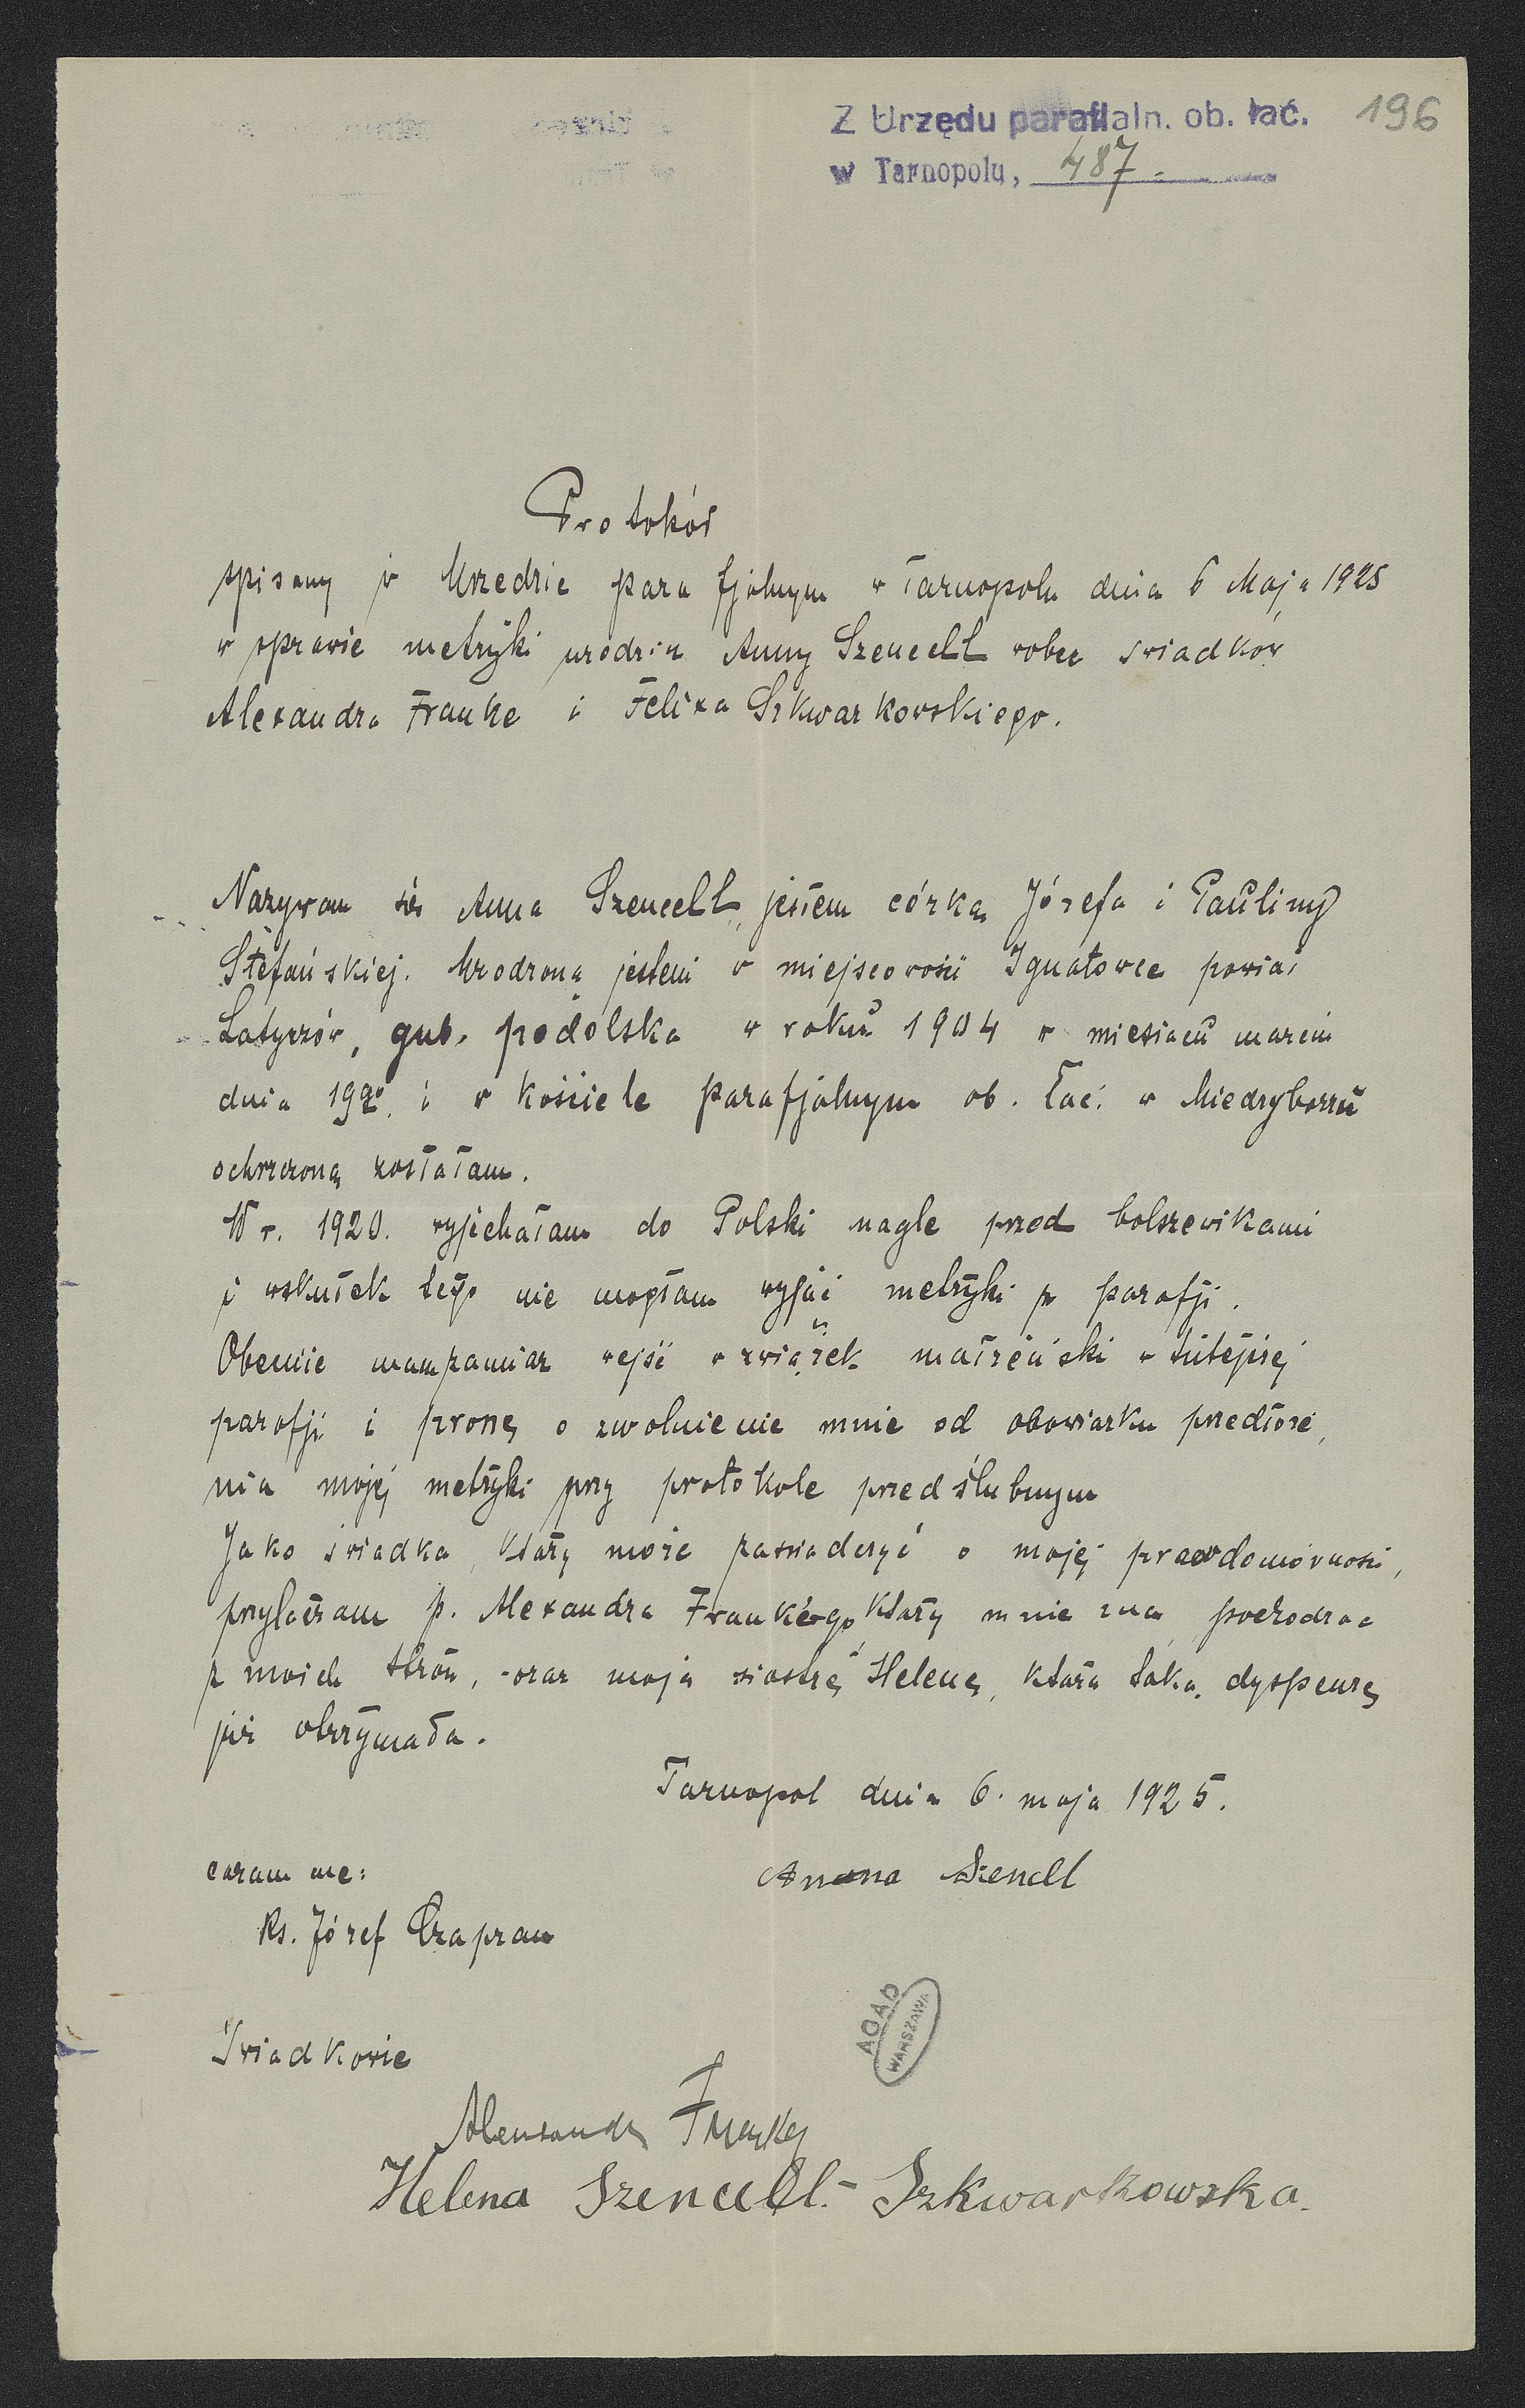 Z Urzędu parafialn. ob. łać. 196
w Tarnopolu, 487.
Protokół
spisany w Urzędzie parafjalnym w Tarnopolu dnia 6 Maja 1925
w sprawie metryki urodzin Anny Szencell wobec świadków
Alexandra Franke i Felixa Szkwarkowskiego.
Nazywam się Anna Szencell, jestem córką Józefa i Pauliny
Stefańskiej. Urodzona jestem w miejscowości Ignatowce powiat
Latyczów, gub. podolska w roku 1904 w miesiącu marcu
dnia 19go, i w kościele parafjalnym ob. łać. w Miedzyborzu
ochrzczoną zostałam.
W r. 1920. wyjechałam do Polski nagle przed bolszewikami
i wskutek tego nie mogłam wyjąć metryki z parafji.
Obecnie mam zamiar wejść w związek małżeński w tutejszej
parafji i proszę o zwolnienie mnie od obowiązku przedłoże
nia mojej metryki przy protokole przedślubnym
Jako świadka, który może zaświadczyć o mojej prawdomówności,
przyłączam p. Alexandra Frankego, który mnie zna, pochodząc
z moich stron, oraz moją siostrę Helenę, która taką dyspensę
już otrzymała.
Tarnopol dnia 6. maja 1925.
coram me: Anna Szencll
Ks. Józef Czapran
AGAD
WARSZAWA
Świadkowie
Alexsander Franke
Helena Szencell.- Szkwarkowska.